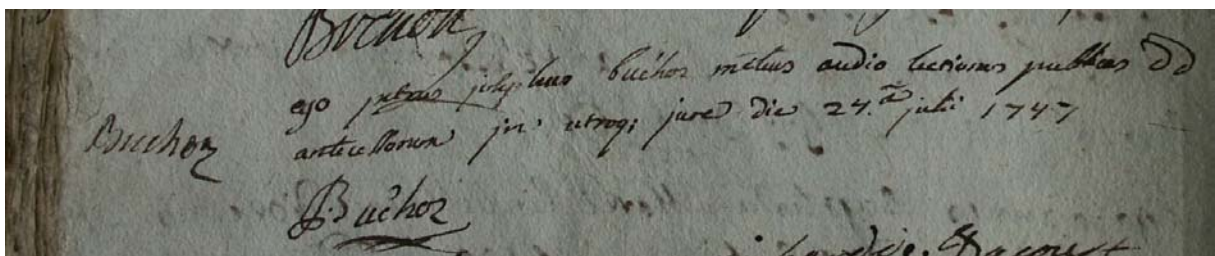 Buchoz
ego petrus josephus buchoz metius audio lectiones publicas DD
Buchoz
antecessorum jn utroq; jure die 24.a julii 1747
Buchoz